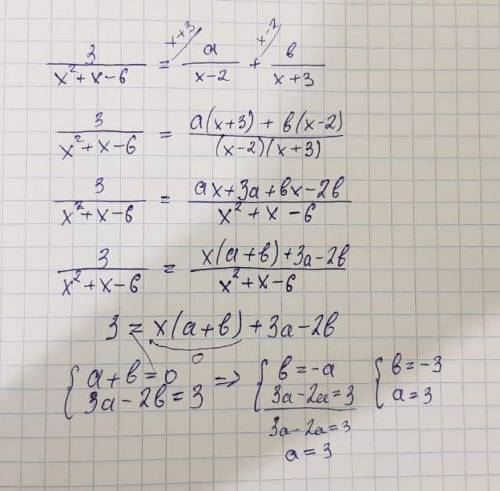 3/(x²+x-6) = a/(x-2) + b/(x+3) x+3 x-2
3/(x²+x-6) = (a(x+3)+b(x-2))/((x-2)(x+3))
3/(x²+x-6) = (ax+3a+bx-2b)/(x²+x-6)
3/(x²+x-6) = (x(a+b)+3a-2b)/(x²+x-6)
3 = x(a+b)+3a-2b
0
{ a+b=0 => { b=-a { b=-3
3a-2b=3 3a-2a=3 a=3
3a-2a=3
a=3